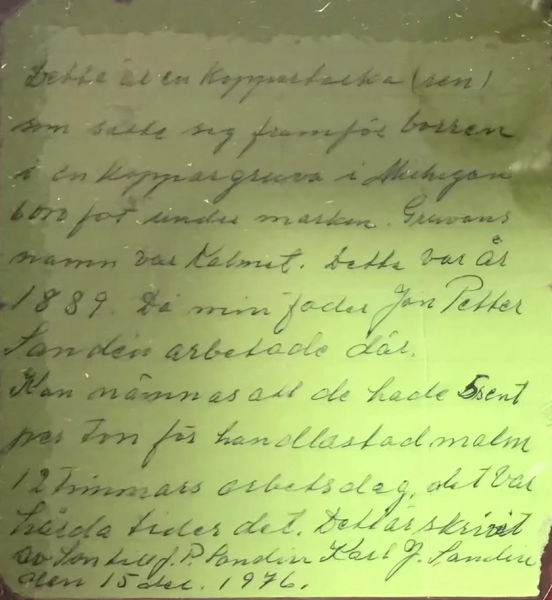 Detta är en Kopparbacka (ren)
som satte sig framför borren
i en Koppargruva i Michigan
6000 fot under marken. Gruvans
namn var Kalmet. Detta var År
1889. Då min fader Jon Petter
Sandin arbetade där.
Kan nämnas att de hade 5 sent
per Ton för handlastad malm
12 timmars arbetsdag, det var
hårda tider det. Detta är skrivit
av Son till J. P. Sandin Karl J. Sandin
den 15 dec. 1976.